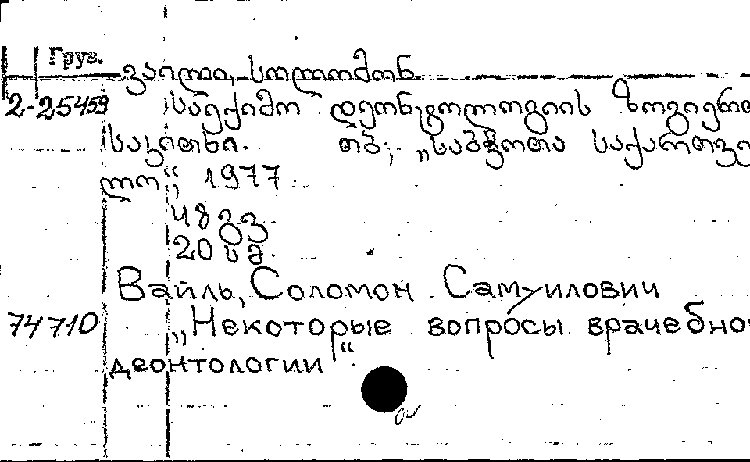 Груз.
ვაილი, სოლომონ
2-25459 საექიმო დეონტოლოგიის ზოგიერთ
საკითხი. თბ., „საბჭოთა საქართვე
ლო“, 1977
48 გვ.
20 სმ.
Вайль, Соломон Самуилович
74710 „Некоторые вопросы врачебной
деонтологии“.